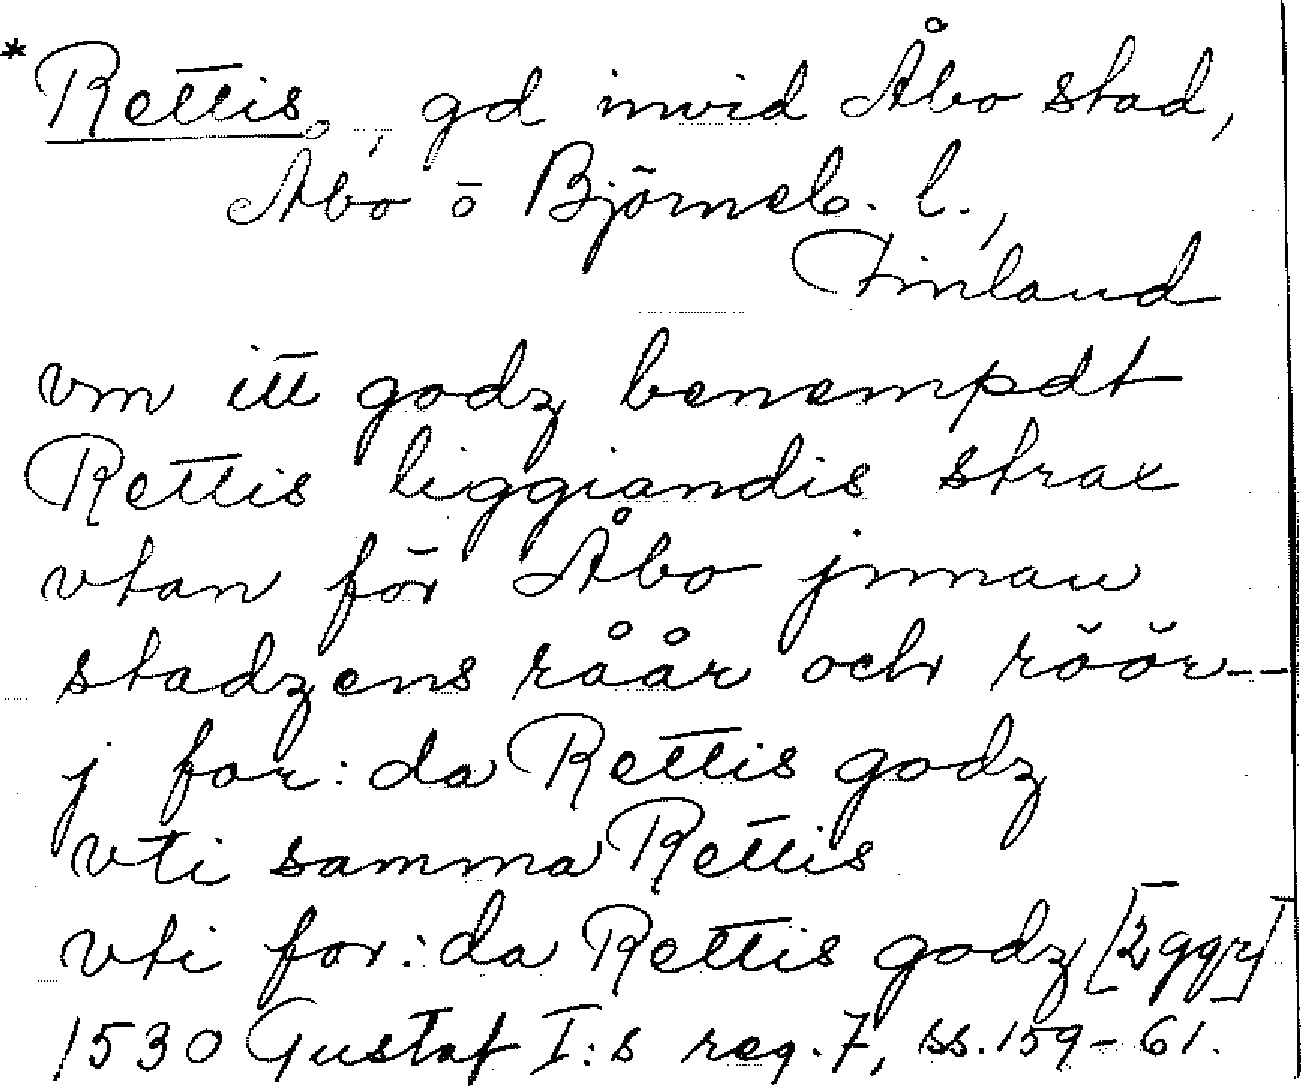 * Rettis, gd invid Åbo stad,
Åbo o Björneb. l.,
Finland
vm itt godz benempdt
Rettis liggiandis strax
vtan för Åbo jnnan
stadzens råår och röör--
j for:da Rettis godz
vti samma Rettis
vti for:da Rettis godz [2 ggr]
1530 Gustaf I:s reg. 7, ss. 159-61.